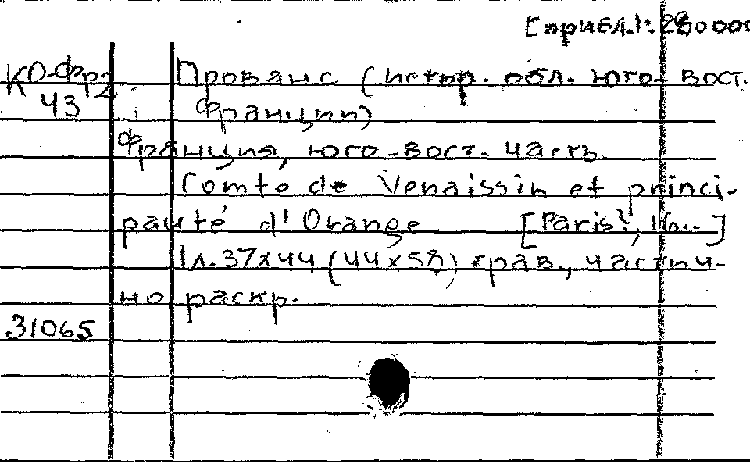 [прибл. 1:280000
КО-Фр2 Прованс (истор. обл. юго-вост.
43 Франции)
Франция, юго-вост. часть.
Comte de Venaissin et princi-
pauté d'Orange [Paris?, 16..]
1л. 37х44 (44х58) грав., частич-
но раскр.
31065